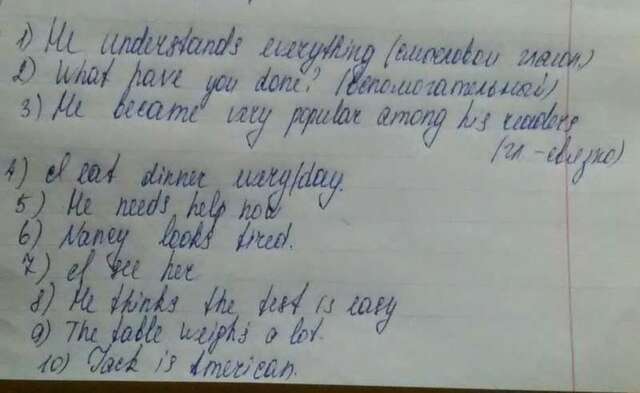 1) He understands everything (смысловой глагол)
2) What have you done? (вспомогательный)
3) He became very popular among his readers
(гл.-связка)
4) I eat dinner every day.
5) He needs help now
6) Nancy looks tired.
7) I see her
8) He thinks the test is easy
9) The table weighs a lot.
10) Jack is American.